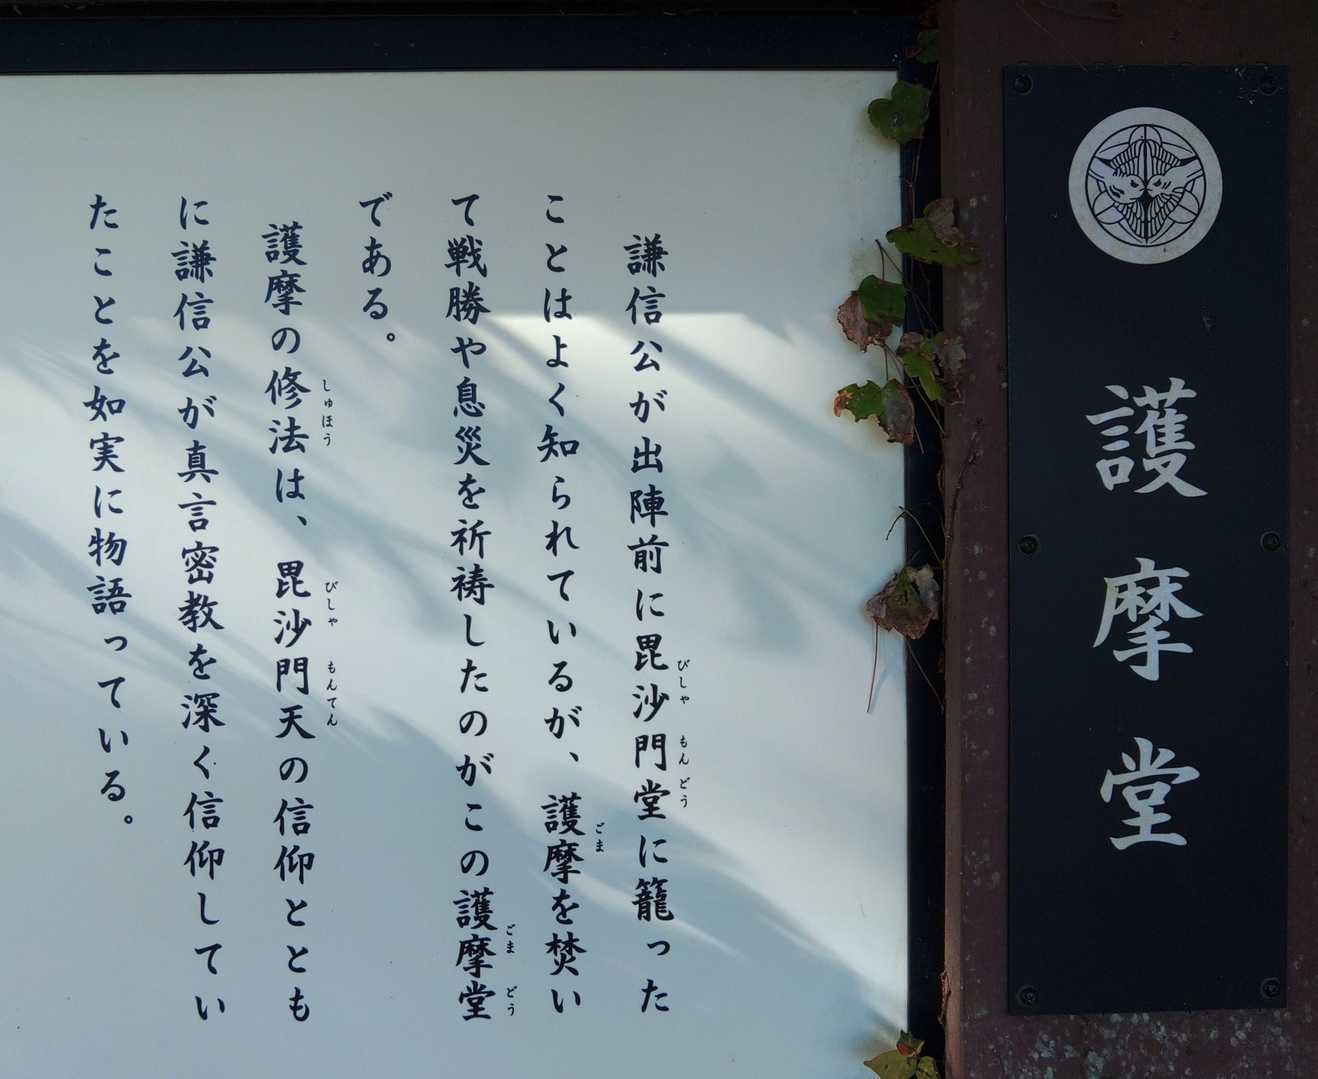 護摩堂
謙信公が出陣前に毘沙門堂に籠った
びしゃ もんどう
ことはよく知られているが、護摩を焚い
ごま
て戦勝や息災を祈祷したのがこの護摩堂
ごま どう
である。
護摩の修法は、毘沙門天の信仰ととも
しゅほう びしゃ もんてん
に謙信公が真言密教を深く信仰してい
たことを如実に物語っている。